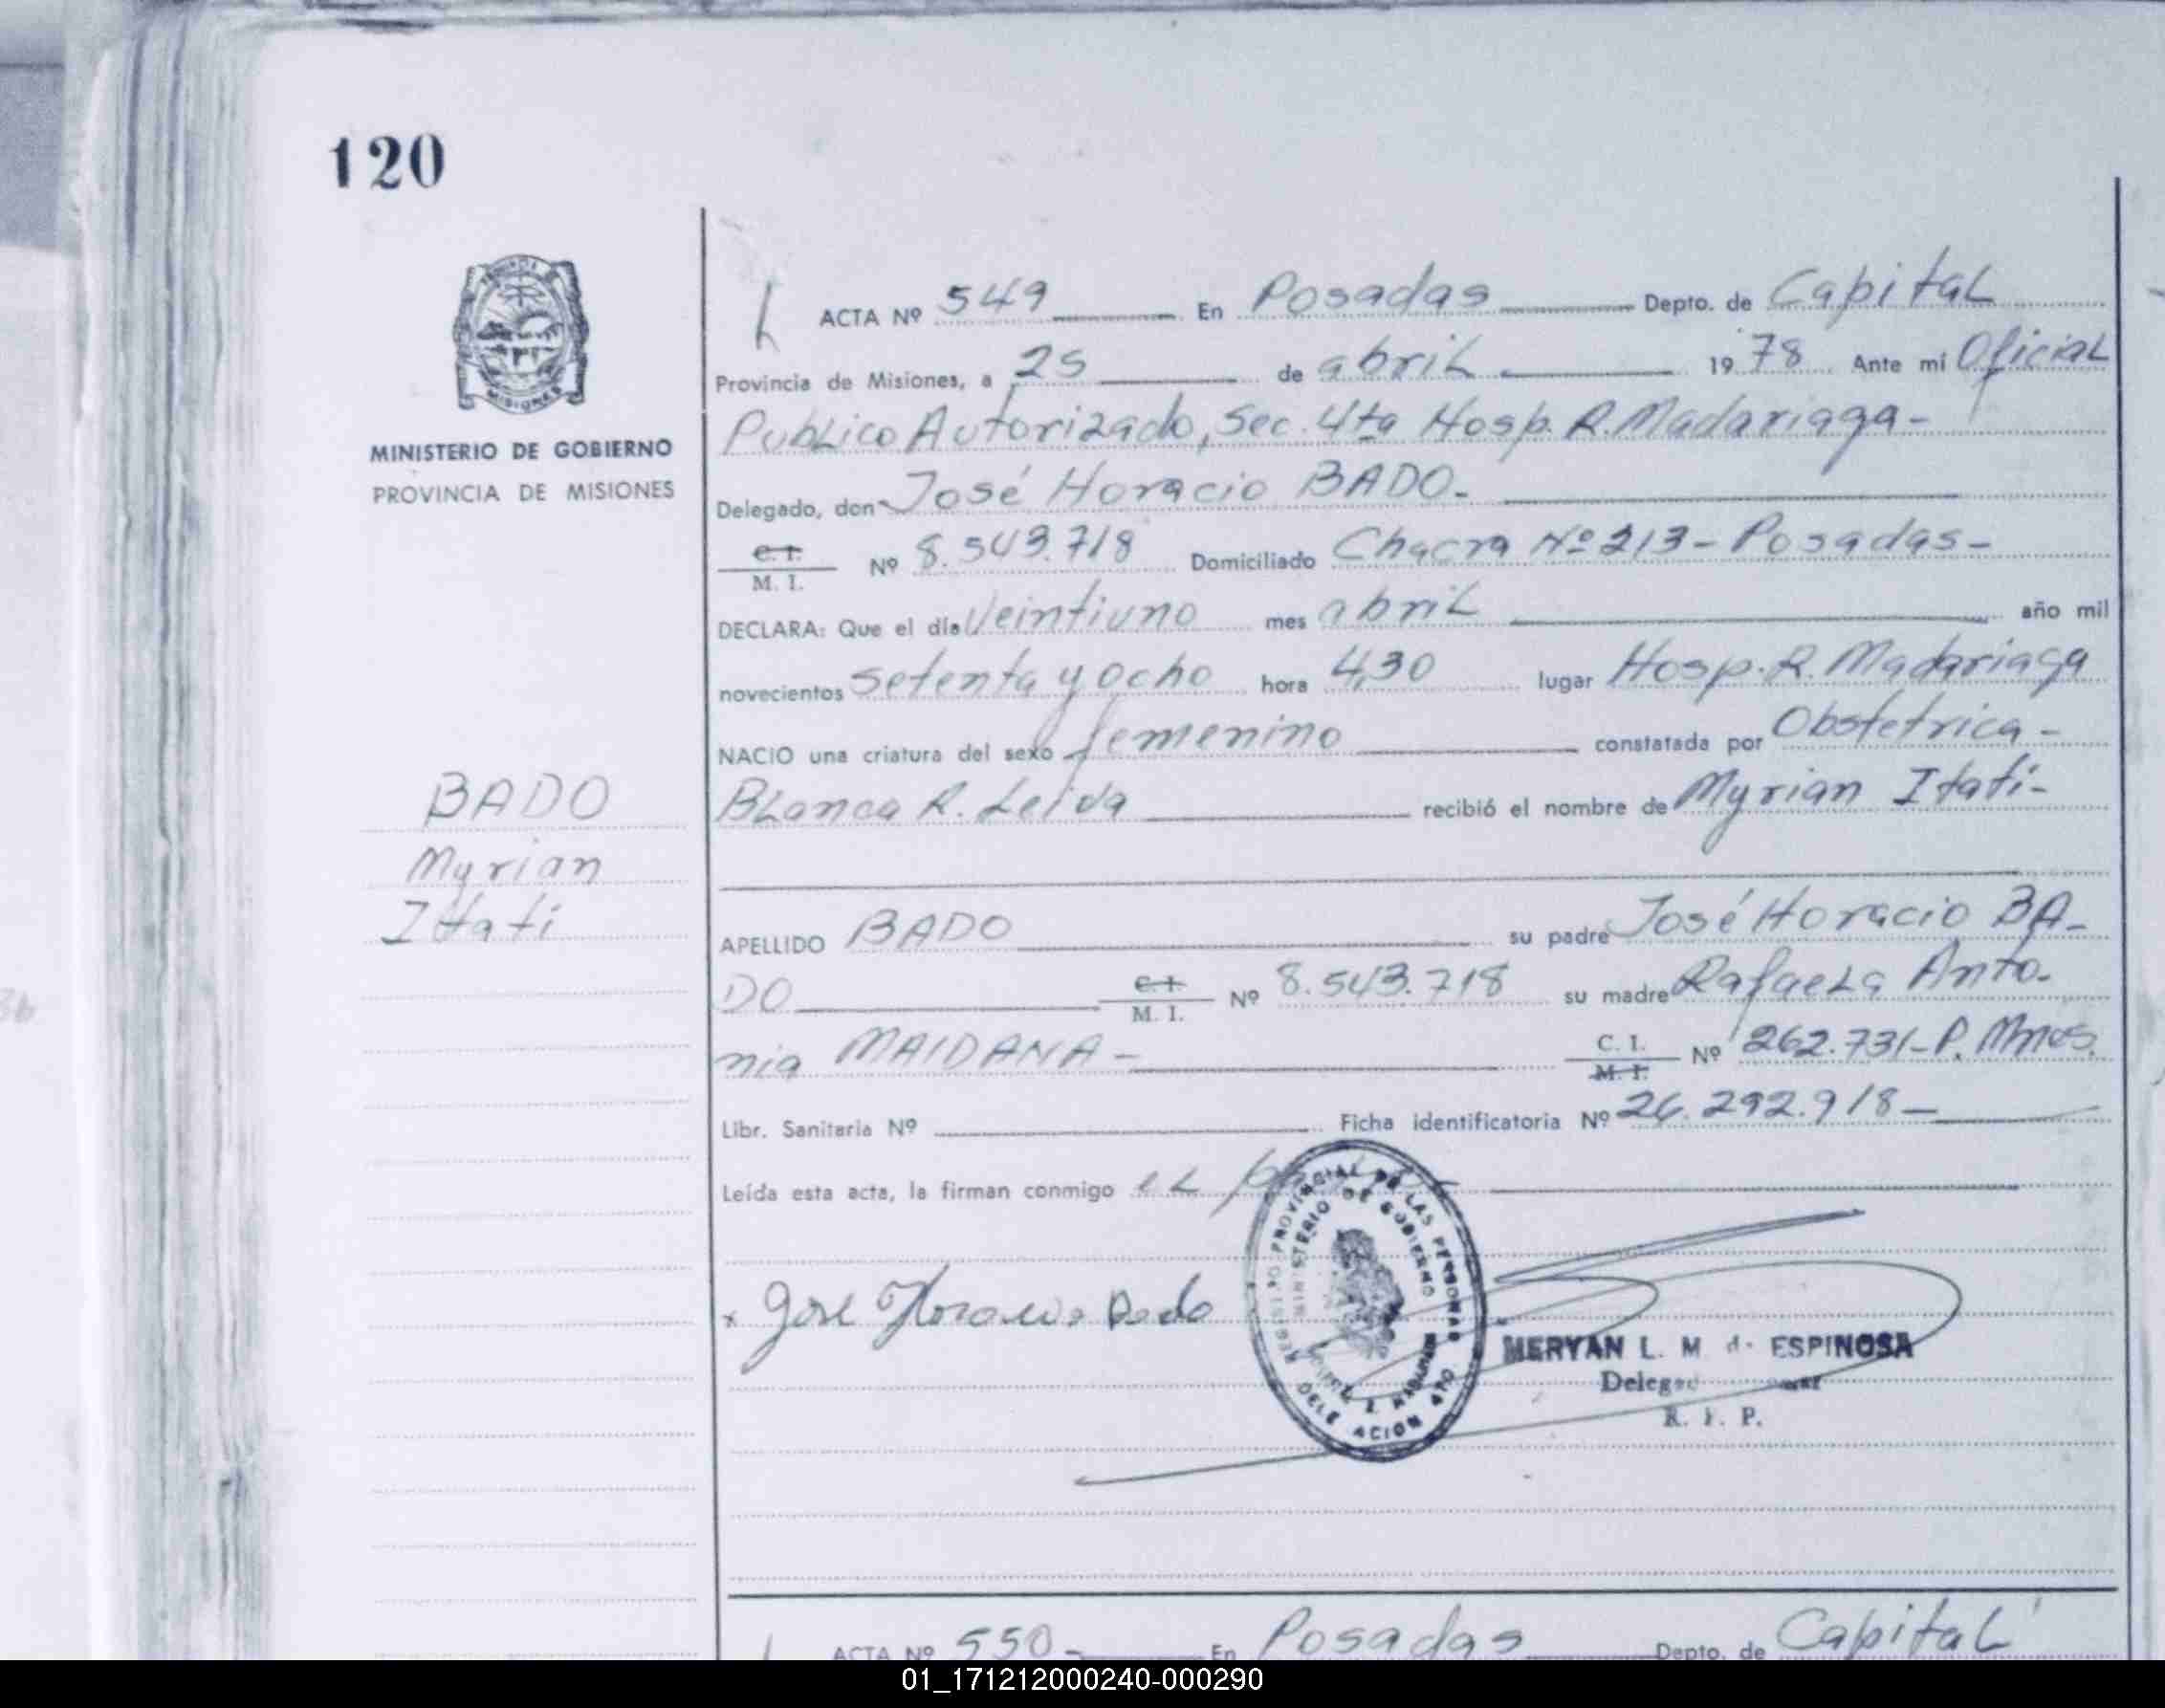 120
MINISTERIO DE GOBIERNO
PROVINCIA DE MISIONES
BADO
Myrian
Itati
ACTA Nº 549 En Posadas Depto. de Capital
Provincia de Misiones, a 25 de abril 1978 Ante mí Oficial
Publico Autorizado, Sec. 4ta Hosp. R. Madariaga-
Delegado, don José Horacio BADO.-
C. I.
M. I. Nº 8.543.718 Domiciliado Chacra Nº 213 - Posadas -
DECLARA: Que el día Veintiuno mes abril año mil
novecientos setenta y ocho hora 4,30 lugar Hosp. R. Madariaga
NACIO una criatura del sexo femenino constatada por Obstetrica -
Blanca R. Leiva recibió el nombre de Myrian Itatí-
APELLIDO BADO su padre José Horacio BA-
DO C. I.
M. I. Nº 8.543.718 su madre Rafaela Anto-
nia MAIDANA - C. I.
M. I. Nº 262.731-P. Mnes.
Libr. Sanitaria Nº Ficha identificatoria Nº 26.292.918-
Leída esta acta, la firman conmigo el
José Horacio Bado
REGISTRO PROVINCIAL DE LAS PERSONAS
MINISTERIO DE GOBIERNO
MERYAN L. M. de ESPINOSA
R. P.
ACTA Nº 550- En Posadas Depto. de Capital
01_171212000240-000290